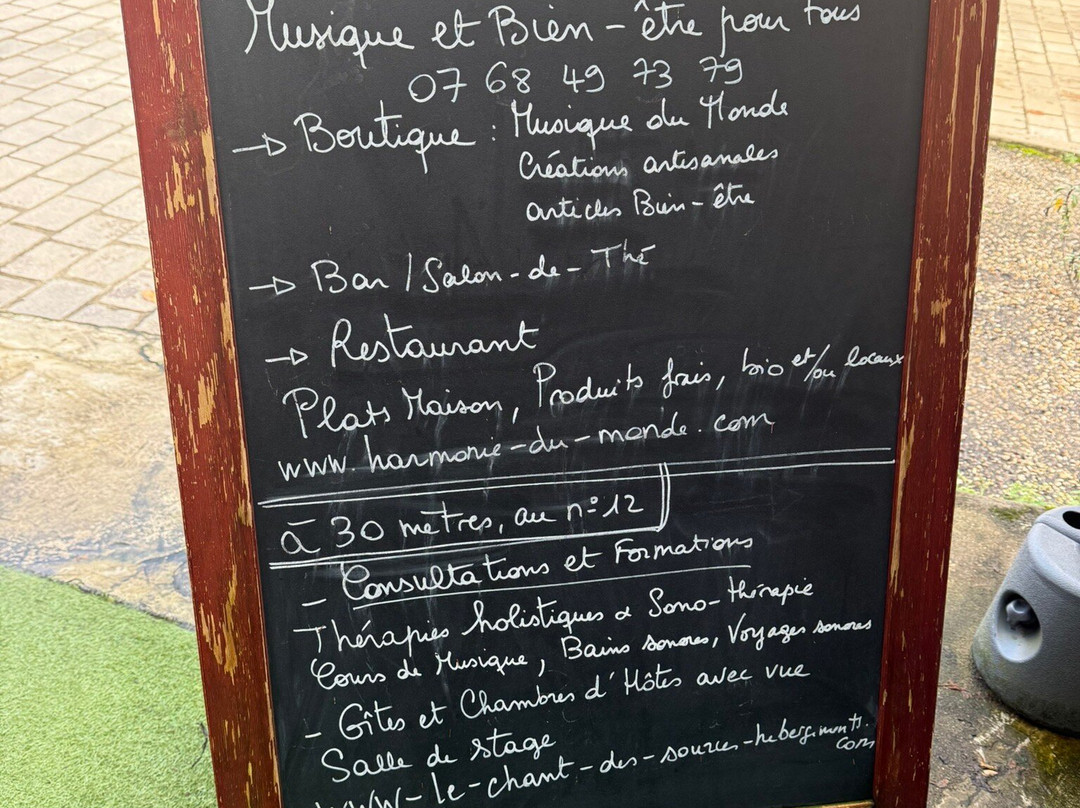 Musique et Bien-être pour tous
07 68 49 73 79
→ Boutique : Musique du Monde
Créations artisanales
articles Bien-être
→ Bar / Salon-de-Thé
→ Restaurant
Plats Maison, Produits frais, bio et/ou locaux
www.harmonie-du-monde.com
à 30 mètres, au n° 12
- Consultations et Formations
Thérapies holistiques & Sono-thérapie
Cours de Musique, Bains sonores, Voyages sonores
- Gîtes et Chambres d'Hôtes avec vue
Salle de stage
www-le-chant-des-sources-hebergements.
com